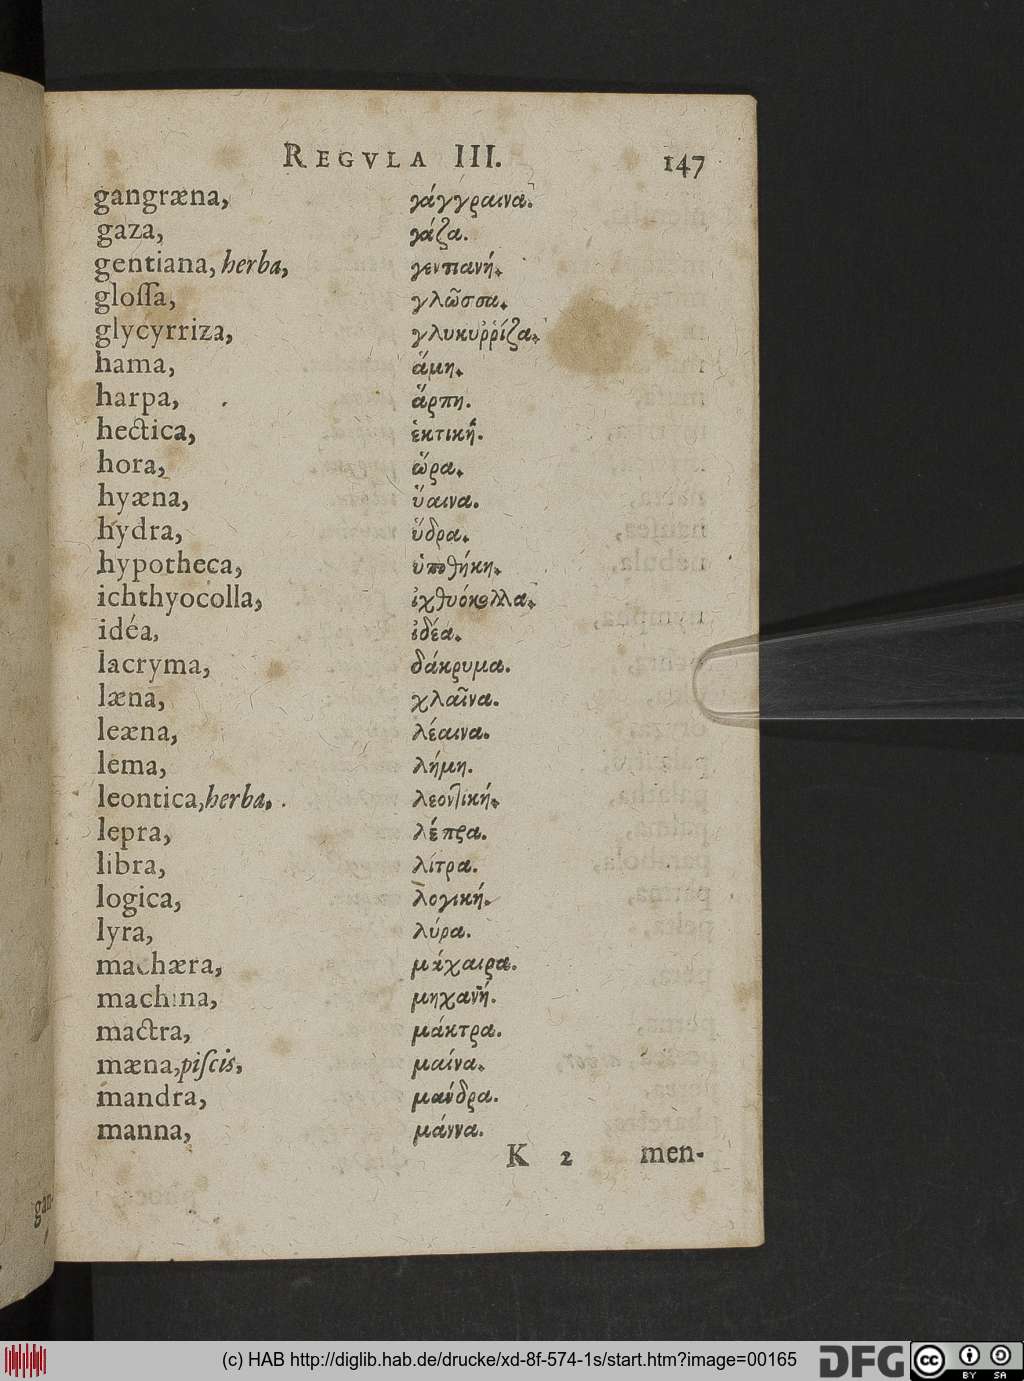 REGVLA III. 147
gangræna, γάγγραινα.
gaza, γάζα.
gentiana, herba, γεντιανή.
gloſſa, γλῶσσα.
glycyrriza, γλυκυῤῥίζα.
hama, ἅμη.
harpa, ἅρπη.
hectica, ἑκτικὴ.
hora, ὥρα.
hyæna, ὕαινα.
hydra, ὕδρα.
hypotheca, ὑποθήκη.
ichthyocolla, ἰχθυόκολλα.
idéa, ἰδέα.
lacryma, δάκρυμα.
læna, χλαῖνα.
leæna, λέαινα.
lema, λήμη.
leontica, herba, λεοντική.
lepra, λέπρα.
libra, λίτρα.
logica, λογική.
lyra, λύρα.
machæra, μάχαιρα.
machina, μηχανή.
mactra, μάκτρα.
mæna, piſcis, μαίνα.
mandra, μάνδρα.
manna, μάννα.
K 2 men-
gan-
(c) HAB http://diglib.hab.de/drucke/xd-8f-574-1s/start.htm?image=00165
DFG
cc BY SA